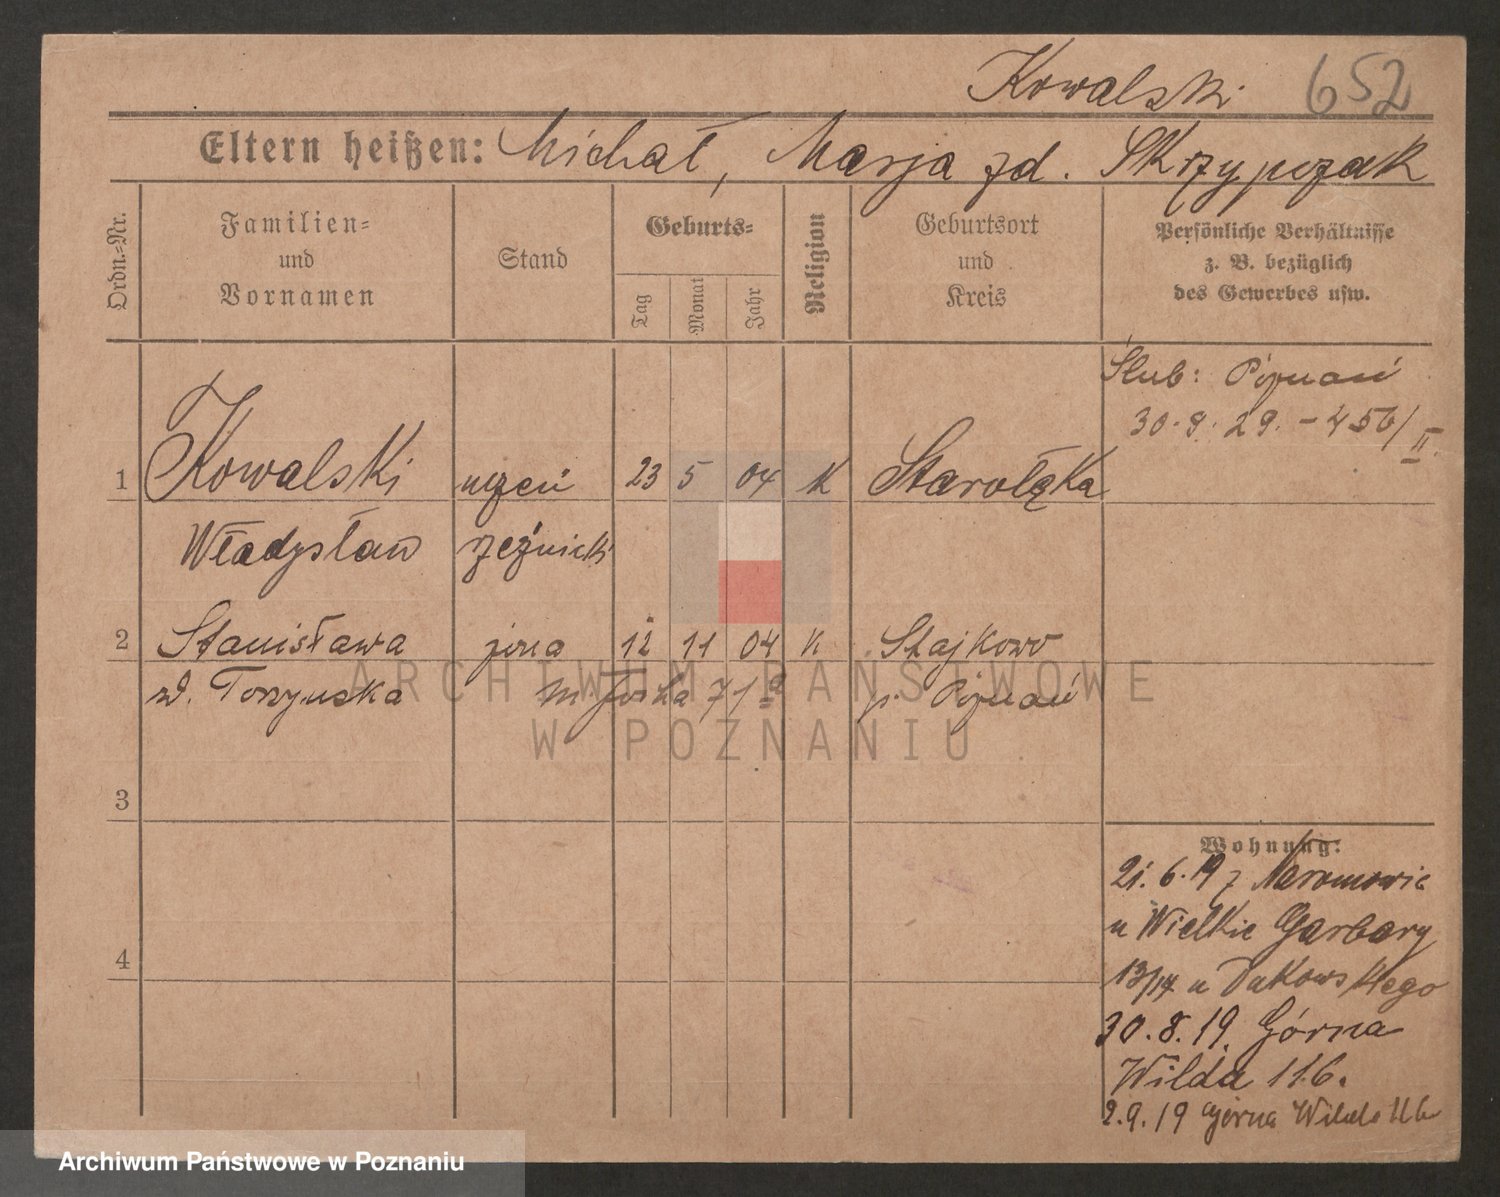 Kowalski 652
Eltern heißen: Michał, Marja zd. Skrzypczak
Ordn.-Nr.
Familien-
und
Vornamen
Stand
Geburts-
Tag
Monat
Jahr
Religion
Geburtsort
und
Kreis
Persönliche Verhältnisse
z. B. bezüglich
des Gewerbes usw.
Ślub: Poznań
30.8.29. - 456/II.
1 Kowalski uczeń 23 5 04 K Starołęka
Władysław rzeźnicki
2 Stanisława żona 12 11 04 K Stajkowo
zd. p. Poznań
3
4
Wohnung:
21.6.19 z Naramowic
u Wielkie Garbary
13/14 u
30.8.19. Górna
Wilda 116.
2.9.19 Górna Wilda 116
ARCHIWUM PAŃSTWOWE
W POZNANIU
Archiwum Państwowe w Poznaniu